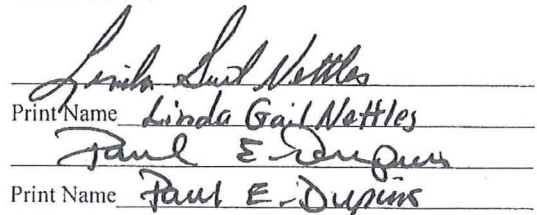 Linda Gail Nettles
Print Name Linda Gail Nettles
Paul E.
Print Name Paul E.